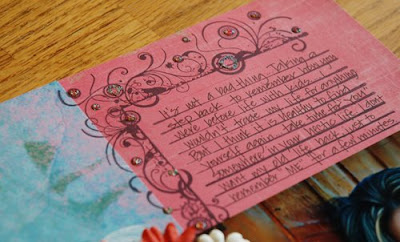 It's not a bad thing. Taking a
step back to remember who you
were before life with kids. I
wouldn't trade my life for anything
But I think it is healthy to find
yourself again. Take time at your
somewhere in your busy life. I don't
want my old life back just to
remember ME for a few minutes